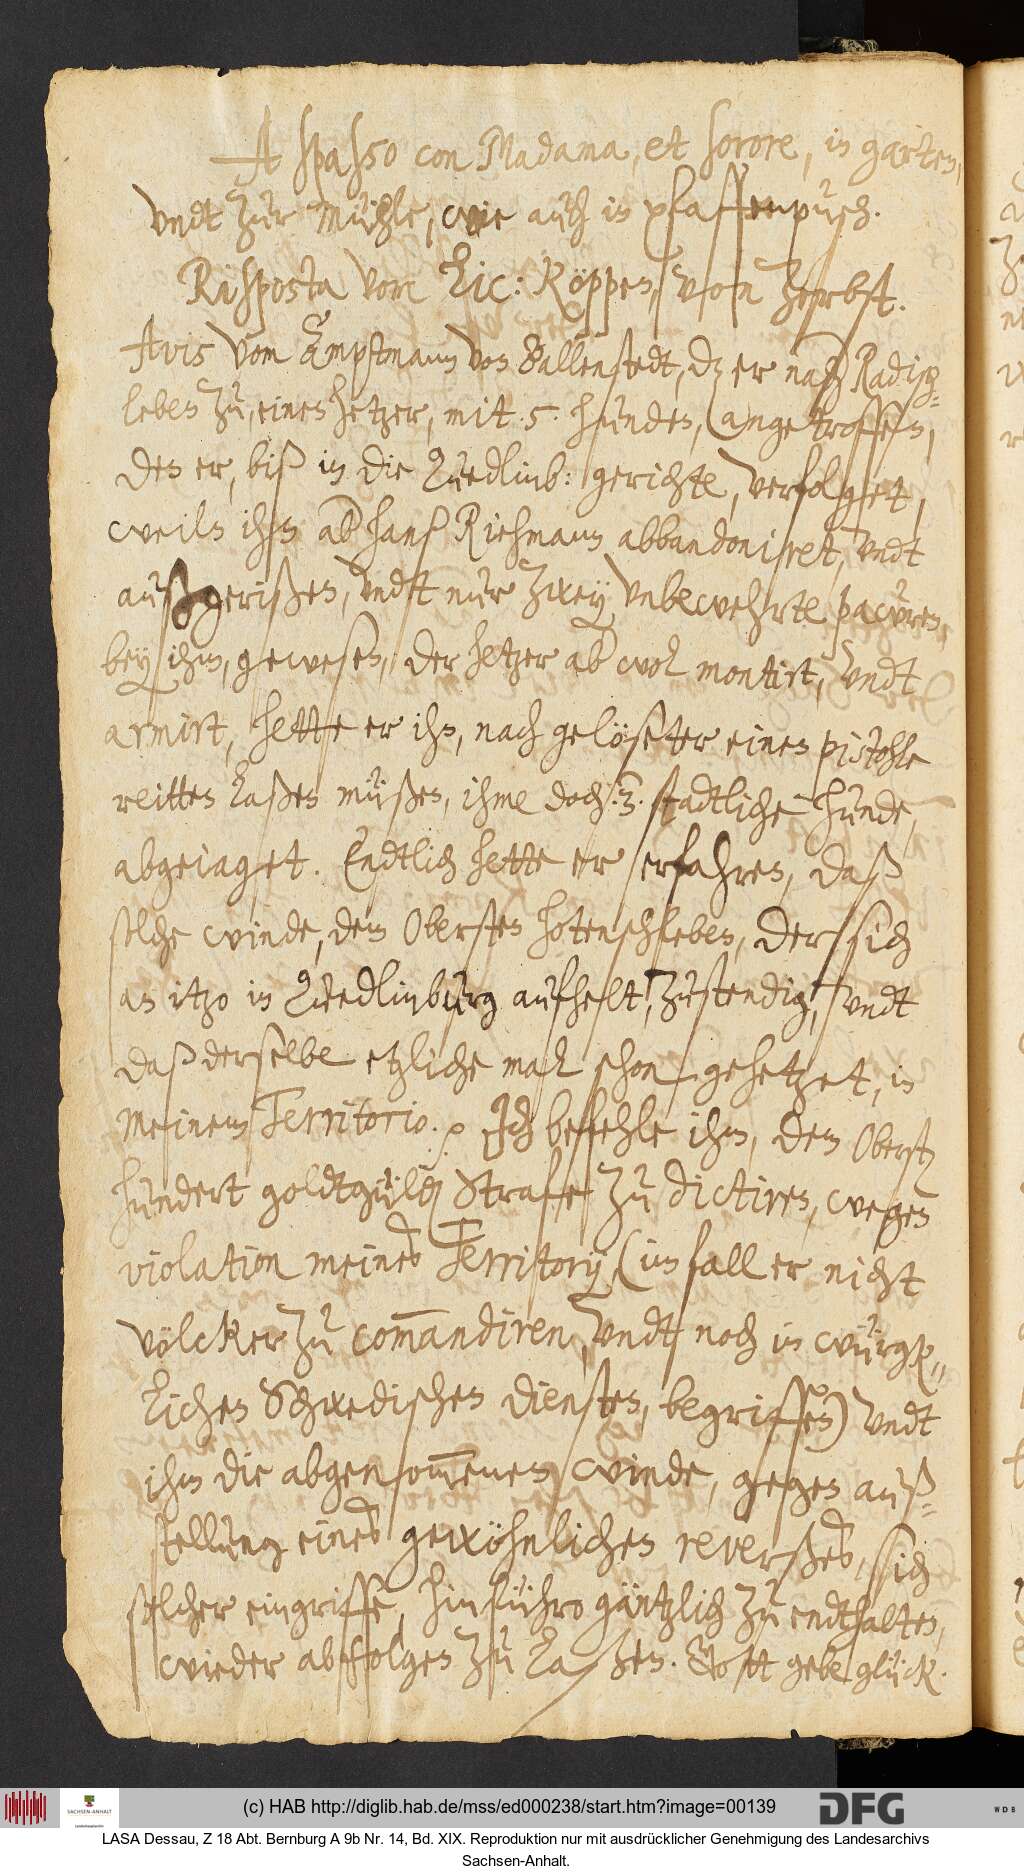 A spasso con Madama, et sorore, in garten,
vndt zur Mühle, wie auch in pfaffenpusch.
Risposta vom Lic: Köppen, von Zerbst.
Avis vom Amptmann von Ballenstedt, dz er nach Radisch=
leben zu, einen hetzer, mit .5. hunden, angetroffen,
den er, biß in die Quedlinb: gerichte, verfolget,
weiln ihn ab Hanß Riehmann abbandoniret, vndt
außgerißen, vndt nur zwey vnbewehrte pawren,
bey ihm, gewesen, der hetzer ab wol montirt, vndt
armirt, hette er ihn, nach gelöseter einen pistohle
reitten laßen müßen, ihme doch .3. stadtliche hunde,
abgeiaget. Endtlich hette er erfahren, daß
solche winde, dem Obersten Hotenschleben, der sich
an itzo in Quedlinburg aufhelt, zustendig, vndt
daß derselbe etzliche mal schon gehetzet, in
meinem Territorio. Ich befehle ihm, dem Oberst
hundert goldtgülden Strafe zu dictiren, wegen
violation meines Territorij, (im fall er nicht
völcker zu com̄andiren, vndt noch in würgk=
lichen Schwedischen diensten, begriffen) vndt
ihm die abgenom̄enen winde, gegen auß=
stellung eines gewöhnlichen reverßes, sich
solcher eingriffe, hinführo gäntzlich zu endthalten,
wieder abfolgen zu laßen. Gott gebe glück.
(c) HAB http://diglib.hab.de/mss/ed000238/start.htm?image=00139
SACHSEN-ANHALT
DFG
WDB
LASA Dessau, Z 18 Abt. Bernburg A 9b Nr. 14, Bd. XIX. Reproduktion nur mit ausdrücklicher Genehmigung des Landesarchivs
Sachsen-Anhalt.